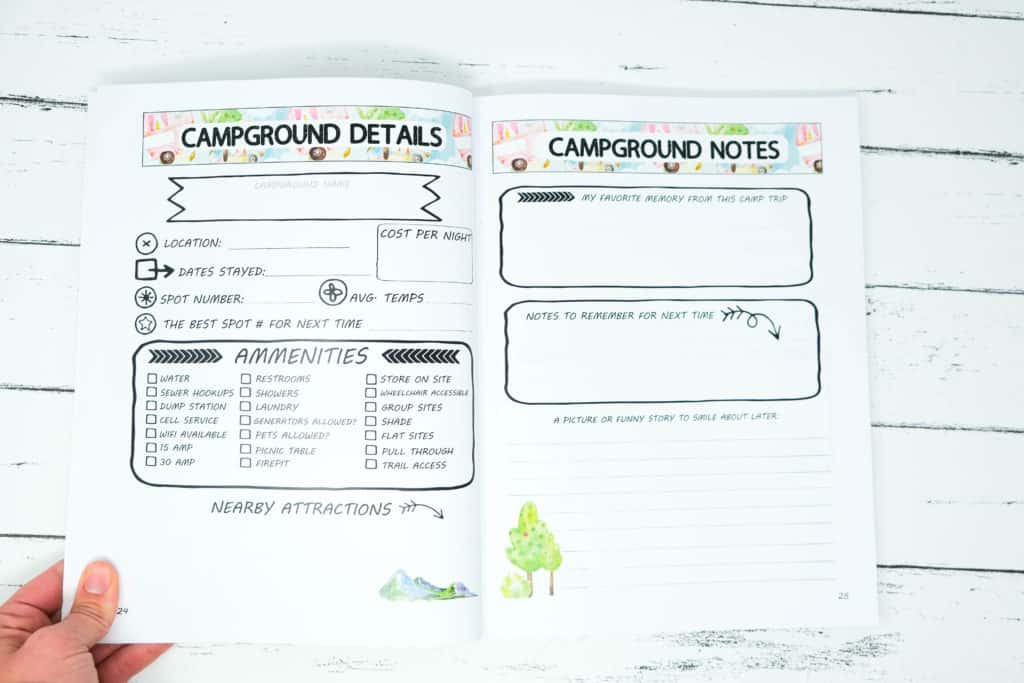 CAMPGROUND DETAILS
CAMPGROUND NAME
LOCATION:
COST PER NIGHT
DATES STAYED:
SPOT NUMBER:
AVG. TEMPS
THE BEST SPOT # FOR NEXT TIME
AMMENITIES
WATER
SEWER HOOKUPS
DUMP STATION
CELL SERVICE
WIFI AVAILABLE
15 AMP
30 AMP
RESTROOMS
SHOWERS
LAUNDRY
GENERATORS ALLOWED?
PETS ALLOWED?
PICNIC TABLE
FIREPIT
STORE ON SITE
WHEELCHAIR ACCESSIBLE
GROUP SITES
SHADE
FLAT SITES
PULL THROUGH
TRAIL ACCESS
NEARBY ATTRACTIONS
24
CAMPGROUND NOTES
MY FAVORITE MEMORY FROM THIS CAMP TRIP
NOTES TO REMEMBER FOR NEXT TIME
A PICTURE OR FUNNY STORY TO SMILE ABOUT LATER:
25